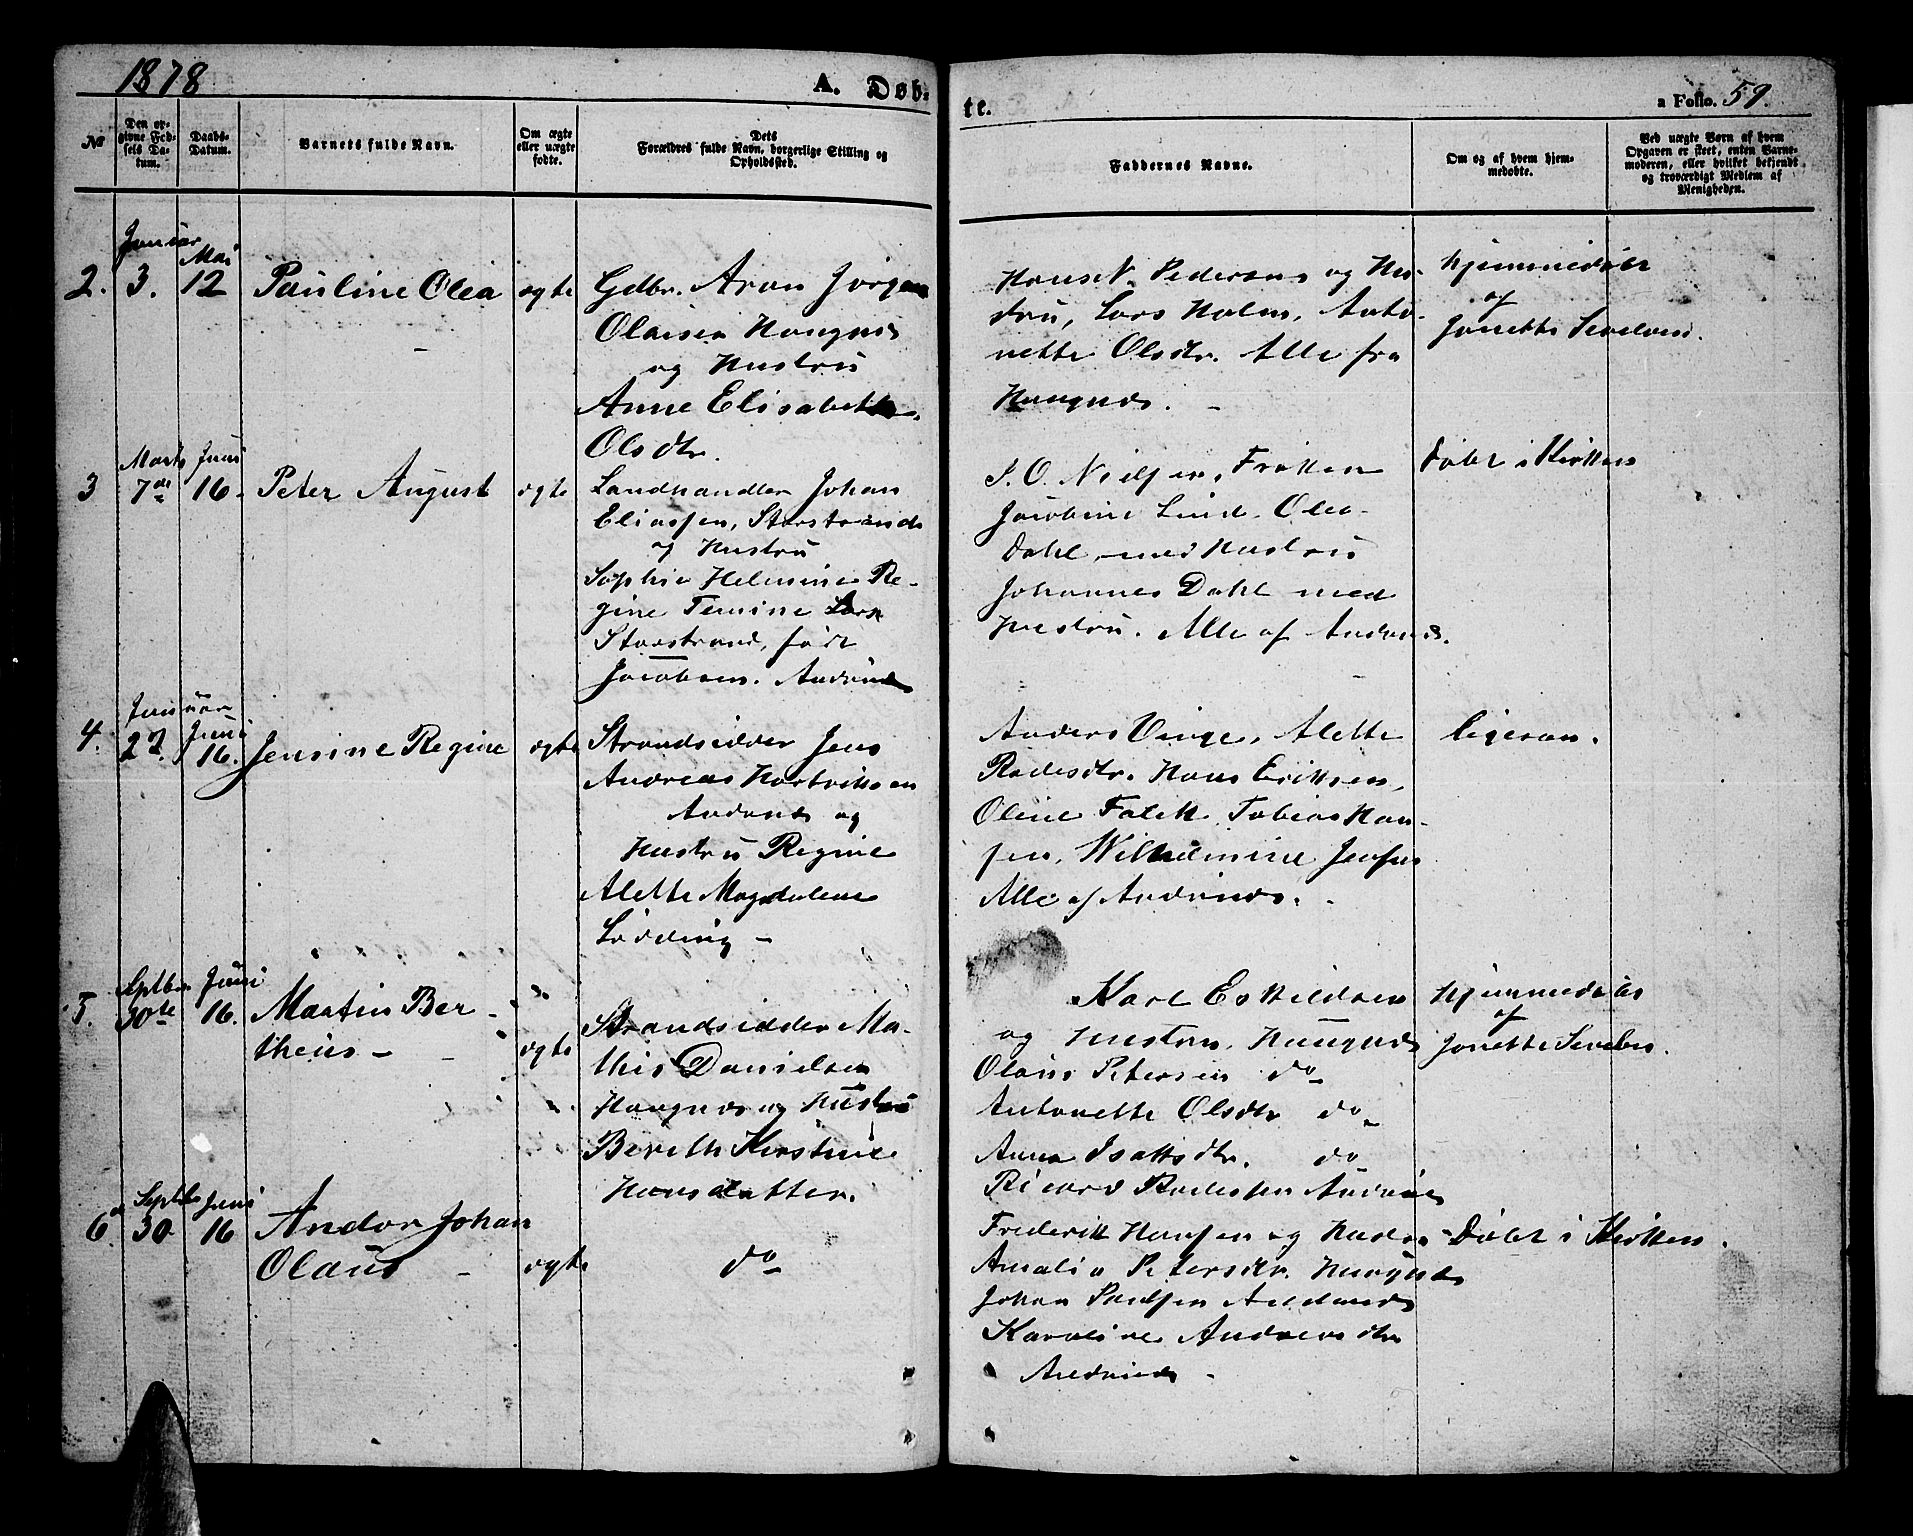 1878
A. Døb-
te.
a Folio. 59.
No
Den opgivne Fødsels Datum.
Daabs-Datum.
Barnets fulde Navn.
Om ægte eller uægte fødte.
Dets Forældres fulde Navn, borgerlige Stilling og Opholdssted.
Faddernes Navne.
Om og af hvem hjemmedøbte.
Ved uægte Børn af hvem Opgaven er skeet, enten Barnemoderen, eller hvilket bekjendt og troværdigt Medlem af Menigheden.
2.
Januar
3.
Mai
12
Pauline Olea
ægte
Gdbr. Aron Jørgen
Olaisen Haugnæs
og Hustru
Anne Elisabeth
Olsdtr.
Hans N. Pedersen og Hu-
stru, Lars Holm, Anto-
nette Olsdtr. Alle fra
Haugnæs.
hjemmedøbt
af
Jonette
3
Marts
7de
Juni
16.
Peter August
ægte
Landhandler Johan
Eliassen, Storstrand
og Hustru
Sophie Helmine Re-
gine
Storstrand, født
Jacobsen.
J. O. Nielsen, Frøken
Jacobine Lind. Olea
Dahl med Hustru
Johannes Dahl med
Hustru. Alle af Andsnæs.
Døbt i Kirken
4.
Januar
27.
Juni
16.
Jensine Regine
ægte
Strandsidder Jens
Andreas Hartviksen
Andsnæs og
Hustru Regine
Alette Magdalene
Lødding -
Anders Vinge, Alette
Radesdtr. Hans Eriksen,
Oline Falck, Tobias Han-
sen, Wilhelmine Jensen
Alle af Andsnæs.
ligesom.
5.
Septbr
30te
Juni
16.
Martin Ber-
theus -
ægte
Strandsidder Ma-
this Danielsen
Haugnæs og Hustru
Berith Kirstine
Hansdatter.
Karl Eskildsen
og Hustru, Haugnæs
Olaus Petersen do
Antonette Olsdtr do
Anna Isaksdtr. do
Ricard Radesen Andsnæs
hjemmedøbt
af
Jonette
6
Septbr
30
Juni
16
Andor Johan
Olaus -
ægte
do
Frederik Hansen og Hustru
Amalia Petersdtr. Haugnæs
Johan Paulsen Andsnæs
Karoline Andreasdtr
Andsnæs -
Døbt i Kirken.